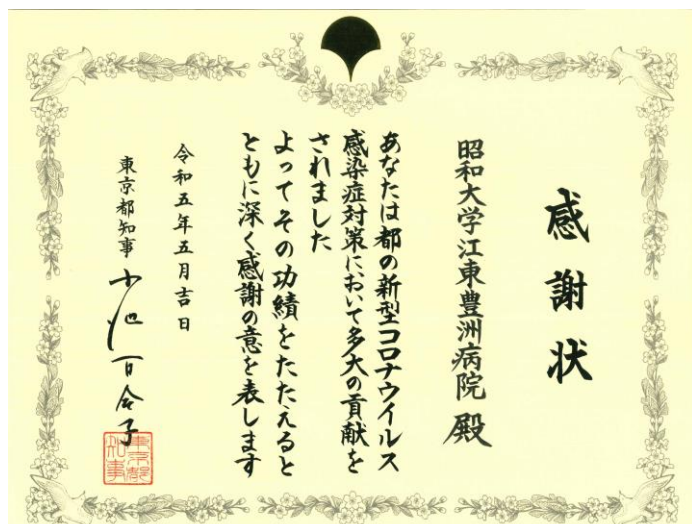 感謝状
昭和大学江東豊洲病院 殿
あなたは都の新型コロナウイルス
感染症対策において多大の貢献を
されました
よってその功績をたたえると
ともに深く感謝の意を表します
令和五年五月吉日
東京都知事 小池百合子
東京都
知事